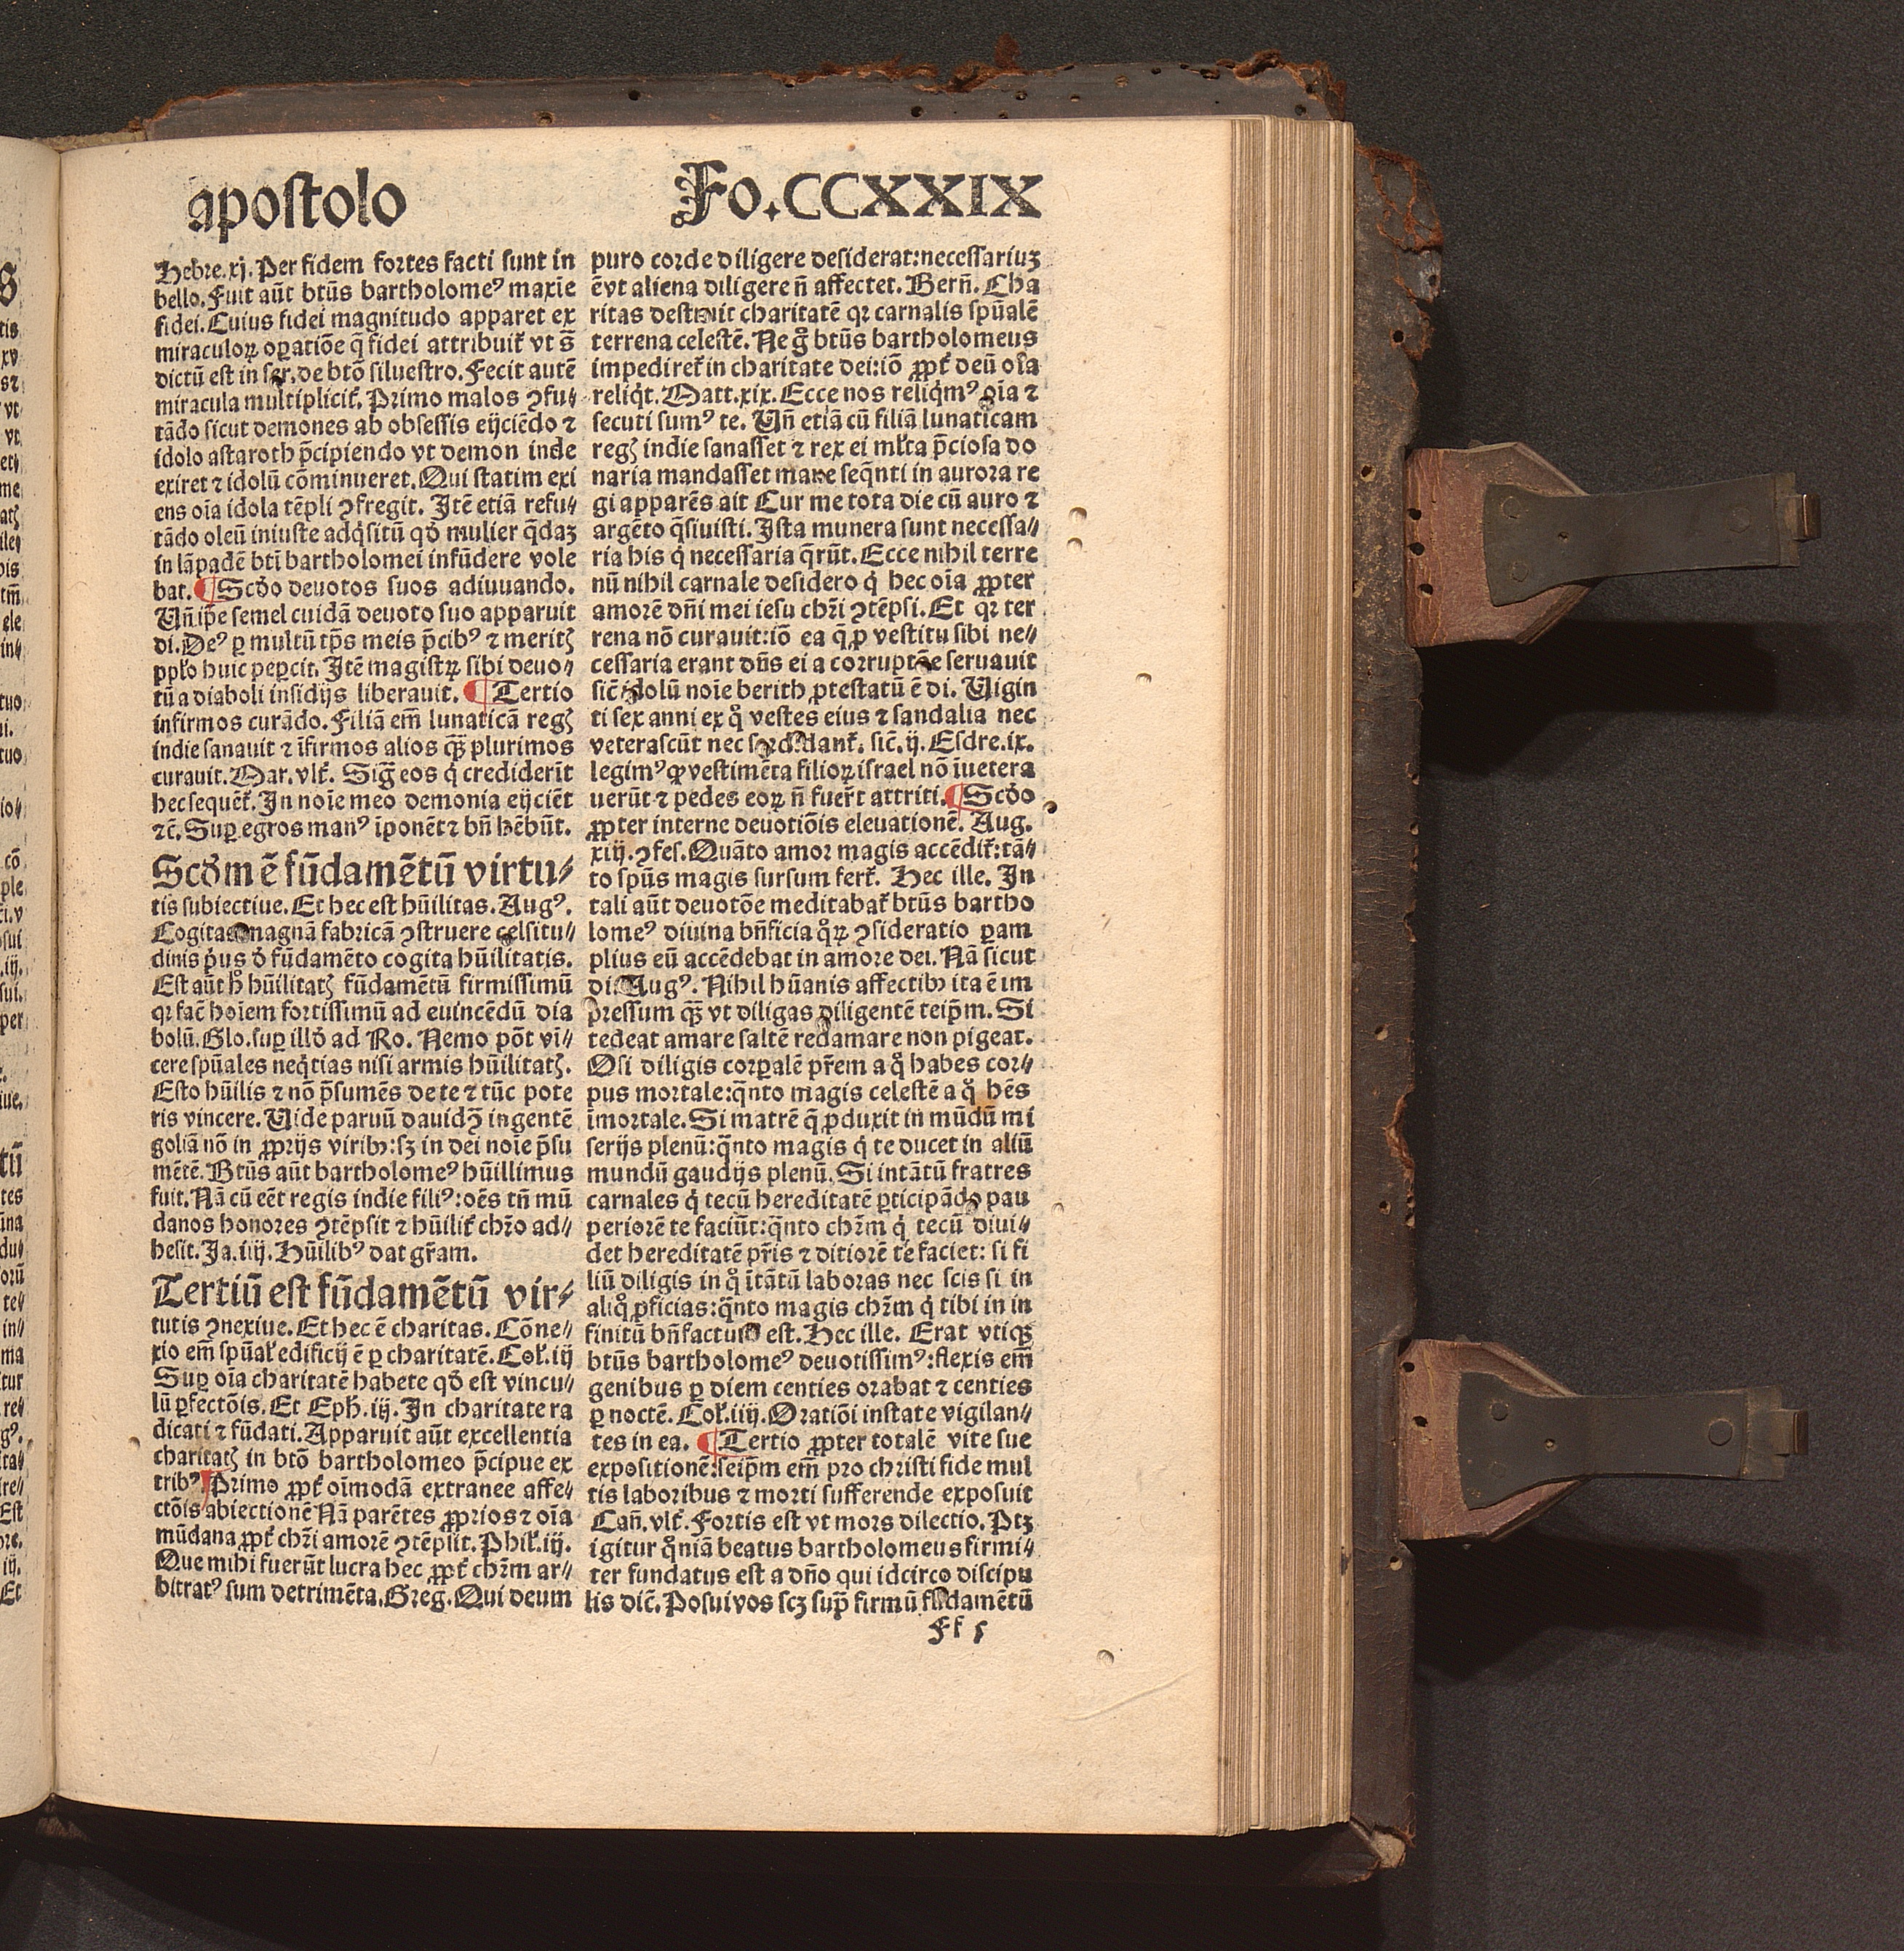 apostolo
Fo.CCXXIX
Hebre.xj. Per fidem fortes facti sunt in
bello. Fuit aūt btūs bartholomeꝰ maxīe
fidei. Cuius fidei magnitudo apparet ex
miraculoꝝ oꝑatiōe q̄ fidei attribuit᷑ vt s̄
dictū est in ser. de btō siluestro. Fecit autē
miracula multiplicit᷑. Primo malos ꝯfu⸗
tādo sicut demones ab obsessis eijciēdo ⁊
idolo astaroth p̄cipiendo vt demon inde
exiret ⁊ idolū cōminueret. Qui statim exi
ens oīa idola tēpli ꝯfregit. Itē etiā refu⸗
tādo oleū iniuste adq̇sitū qd̓ mulier q̄daꝫ
in lāpadē bti bartholomei infūdere vole
bat. ¶ Scd̓o deuotos suos adiuuando.
Un̄ ip̄e semel cuidā deuoto suo apparuit
di. Deꝰ ꝑ multū tp̄s meis p̄cibꝰ ⁊ meritꝭ
ppl̓o huic peꝑcit. Itē magistꝝ sibi deuo⸗
tū a diaboli insidijs liberauit. ¶ Tertio
infirmos curādo. Filiā em̄ lunaticā regꝭ
indie sanauit ⁊ īfirmos alios qꝫ̄ plurimos
curauit. Mar. vlt᷑. Sig̃ eos q̇ crediderīt
hec sequēt᷑. In noīe meo demonia eijciēt
⁊c̄. Suꝑ egros manꝰ īponēt ⁊ bn̄ hēbūt.
Scd̓m ē fūdamētū virtu⸗
tis subiectiue. Et hec est hūilitas. Augꝰ.
Cogitas magnā fabricā ꝯstruere celsitu⸗
dinis pͥus d̓ fūdamēto cogita hūilitatis.
Est aūt h̓ hūilitatꝭ fūdamētū firmissimū
qꝛ fac̄ hoīem fortissimū ad euincēdū dia
bolū. Glo. suꝑ illd̓ ad Ro. Nemo pōt vī⸗
cere spūales neq̇tias nisi armis hūilitatꝭ.
Esto hūilis ⁊ nō p̄sumēs de te ⁊ tūc pote
ris vincere. Uide paruū dauidꝫ̄ ingentē
goliā nō in ꝓprijs viribꝰ: sꝫ in dei noīe p̄su
mētē. Btūs aūt bartholomeꝰ hūillimus
fuit. Nā cū eēt regis indie filiꝰ: oēs tn̄ mū
danos honores ꝯtēpsit ⁊ hūilit᷑ chr̄o ad⸗
hesit. Ja. iiij. Hūilibꝰ dat gr̄am.
Tertiū est fūdamētū vir⸗
tutis ꝯnexiue. Et hec ē charitas. Cōne⸗
xio em̄ spūal̓ edificij ē ꝑ charitatē. Col̓. iij
Suꝑ oīa charitatē habete qd̓ est vincu⸗
lū ꝑfectōis. Et Eph̄. iij. In charitate ra
dicati ⁊ fūdati. Apparuit aūt excellentia
charitatꝭ in btō bartholomeo p̄cipue ex
tribꝰ ¶ Primo ꝓpt᷑ oīmodā extranee affe⸗
ctōis abiectionē Nā parētes ꝓprios ⁊ oīa
mūdana ꝓpt᷑ chr̄i amorē ꝯtēpsit. Phil̓. iij.
Que mihi fuerūt lucra hec ꝓpt᷑ chr̄m ar⸗
bitratꝰ sum detrimēta. Greg. Qui deum
puro corde diligere desiderat: necessariuꝫ
ē vt aliena diligere n̄ affectet. Bern̄. Cha
ritas destruit charitatē qꝛ carnalis spūalē
terrena celestē. Ne g̊ btūs bartholomeus
impediret᷑ in charitate dei: iō ꝓpt᷑ deū oīa
reliq̇t. Matt. xix. Ecce nos reliq̇mꝰ oīa ⁊
secuti sumꝰ te. Un̄ etiā cū filiā lunaticam
regꝭ indie sanasset ⁊ rex ei ml̓ta p̄ciosa do
naria mandasset mane seq̄nti in aurora re
gi apparēs ait Cur me tota die cū auro ⁊
argēto q̄siuisti. Ista munera sunt necessa⸗
ria his q̇ necessaria q̄rūt. Ecce nihil terre
nū nihil carnale desidero q̇ hec oīa ꝓpter
amorē dn̄i mei iesu chr̄i ꝯtēpsi. Et qꝛ ter
rena nō curauit: iō ea q̄ ꝓ vestitu sibi ne⸗
cessaria erant dn̄s ei a corruptōe seruauit
sic̄ idolū noīe berith ꝓtestatū ē di. Uigin
ti sex anni ex q̊ vestes eius ⁊ sandalia nec
veterascūt nec sordidant᷑. sic̄. ij. Esdre. ix.
legimꝰ ꝙ vestimēta filioꝝ israel nō īuetera
uerūt ⁊ pedes eoꝝ n̄ fuer̄t attriti. ¶ Scd̓o
ꝓpter interne deuotiōis eleuationē. Aug.
xiij. ꝯfes. Quāto amor magis accēdit᷑: tā⸗
to spūs magis sursum fert᷑. Hec ille. In
tali aūt deuotōe meditabat᷑ btūs bartho
lomeꝰ diuina bn̄ficia q̊ꝝ ꝯsideratio ꝑam
plius eū accēdebat in amore dei. Nā sicut
di. Augꝰ. Nihil hūanis affectibꝰ ita ē im
pressum qꝫ̄ vt diligas diligentē teip̄m. Si
tedeat amare saltē redamare non pigeat.
O si diligis corꝑalē pr̄em a q̊ habes cor⸗
pus mortale: q̄nto magis celestē a q̊ hēs
īmortale. Si matrē q̄ ꝓduxit in mūdū mi
serijs plenū: q̄nto magis q̇ te ducet in aliū
mundū gaudijs plenū. Si intātū fratres
carnales q̇ tecū hereditatē ꝑticipādo pau
periorē te faciūt: q̄nto chr̄m q̇ tecū diui⸗
det hereditatē pr̄is ⁊ ditiorē te faciet: si fi
liū diligis in q̊ ītātū laboras nec scis si in
aliq̊ ꝓficias: q̄nto magis chr̄m q̇ tibi in in
finitū bn̄factus est. Hec ille. Erat vtiqꝫ
btūs bartholomeꝰ deuotissimꝰ: flexis em̄
genibus ꝑ diem centies orabat ⁊ centies
ꝑ noctē. Col̓. iiij. Oratiōi instate vigilan⸗
tes in ea. ¶ Tertio ꝓpter totalē vite sue
expositionē: seip̄m em̄ pro christi fide mul
tis laboribus ⁊ morti sufferende exposuit
Can̄. vlt᷑. Fortis est vt mors dilectio. Ptꝫ
igitur q̊niā beatus bartholomeus firmi⸗
ter fundatus est a dn̄o qui idcirco discipu
lis dic̄. Posui vos scꝫ suꝑ firmū fūdamētū
Ff 5